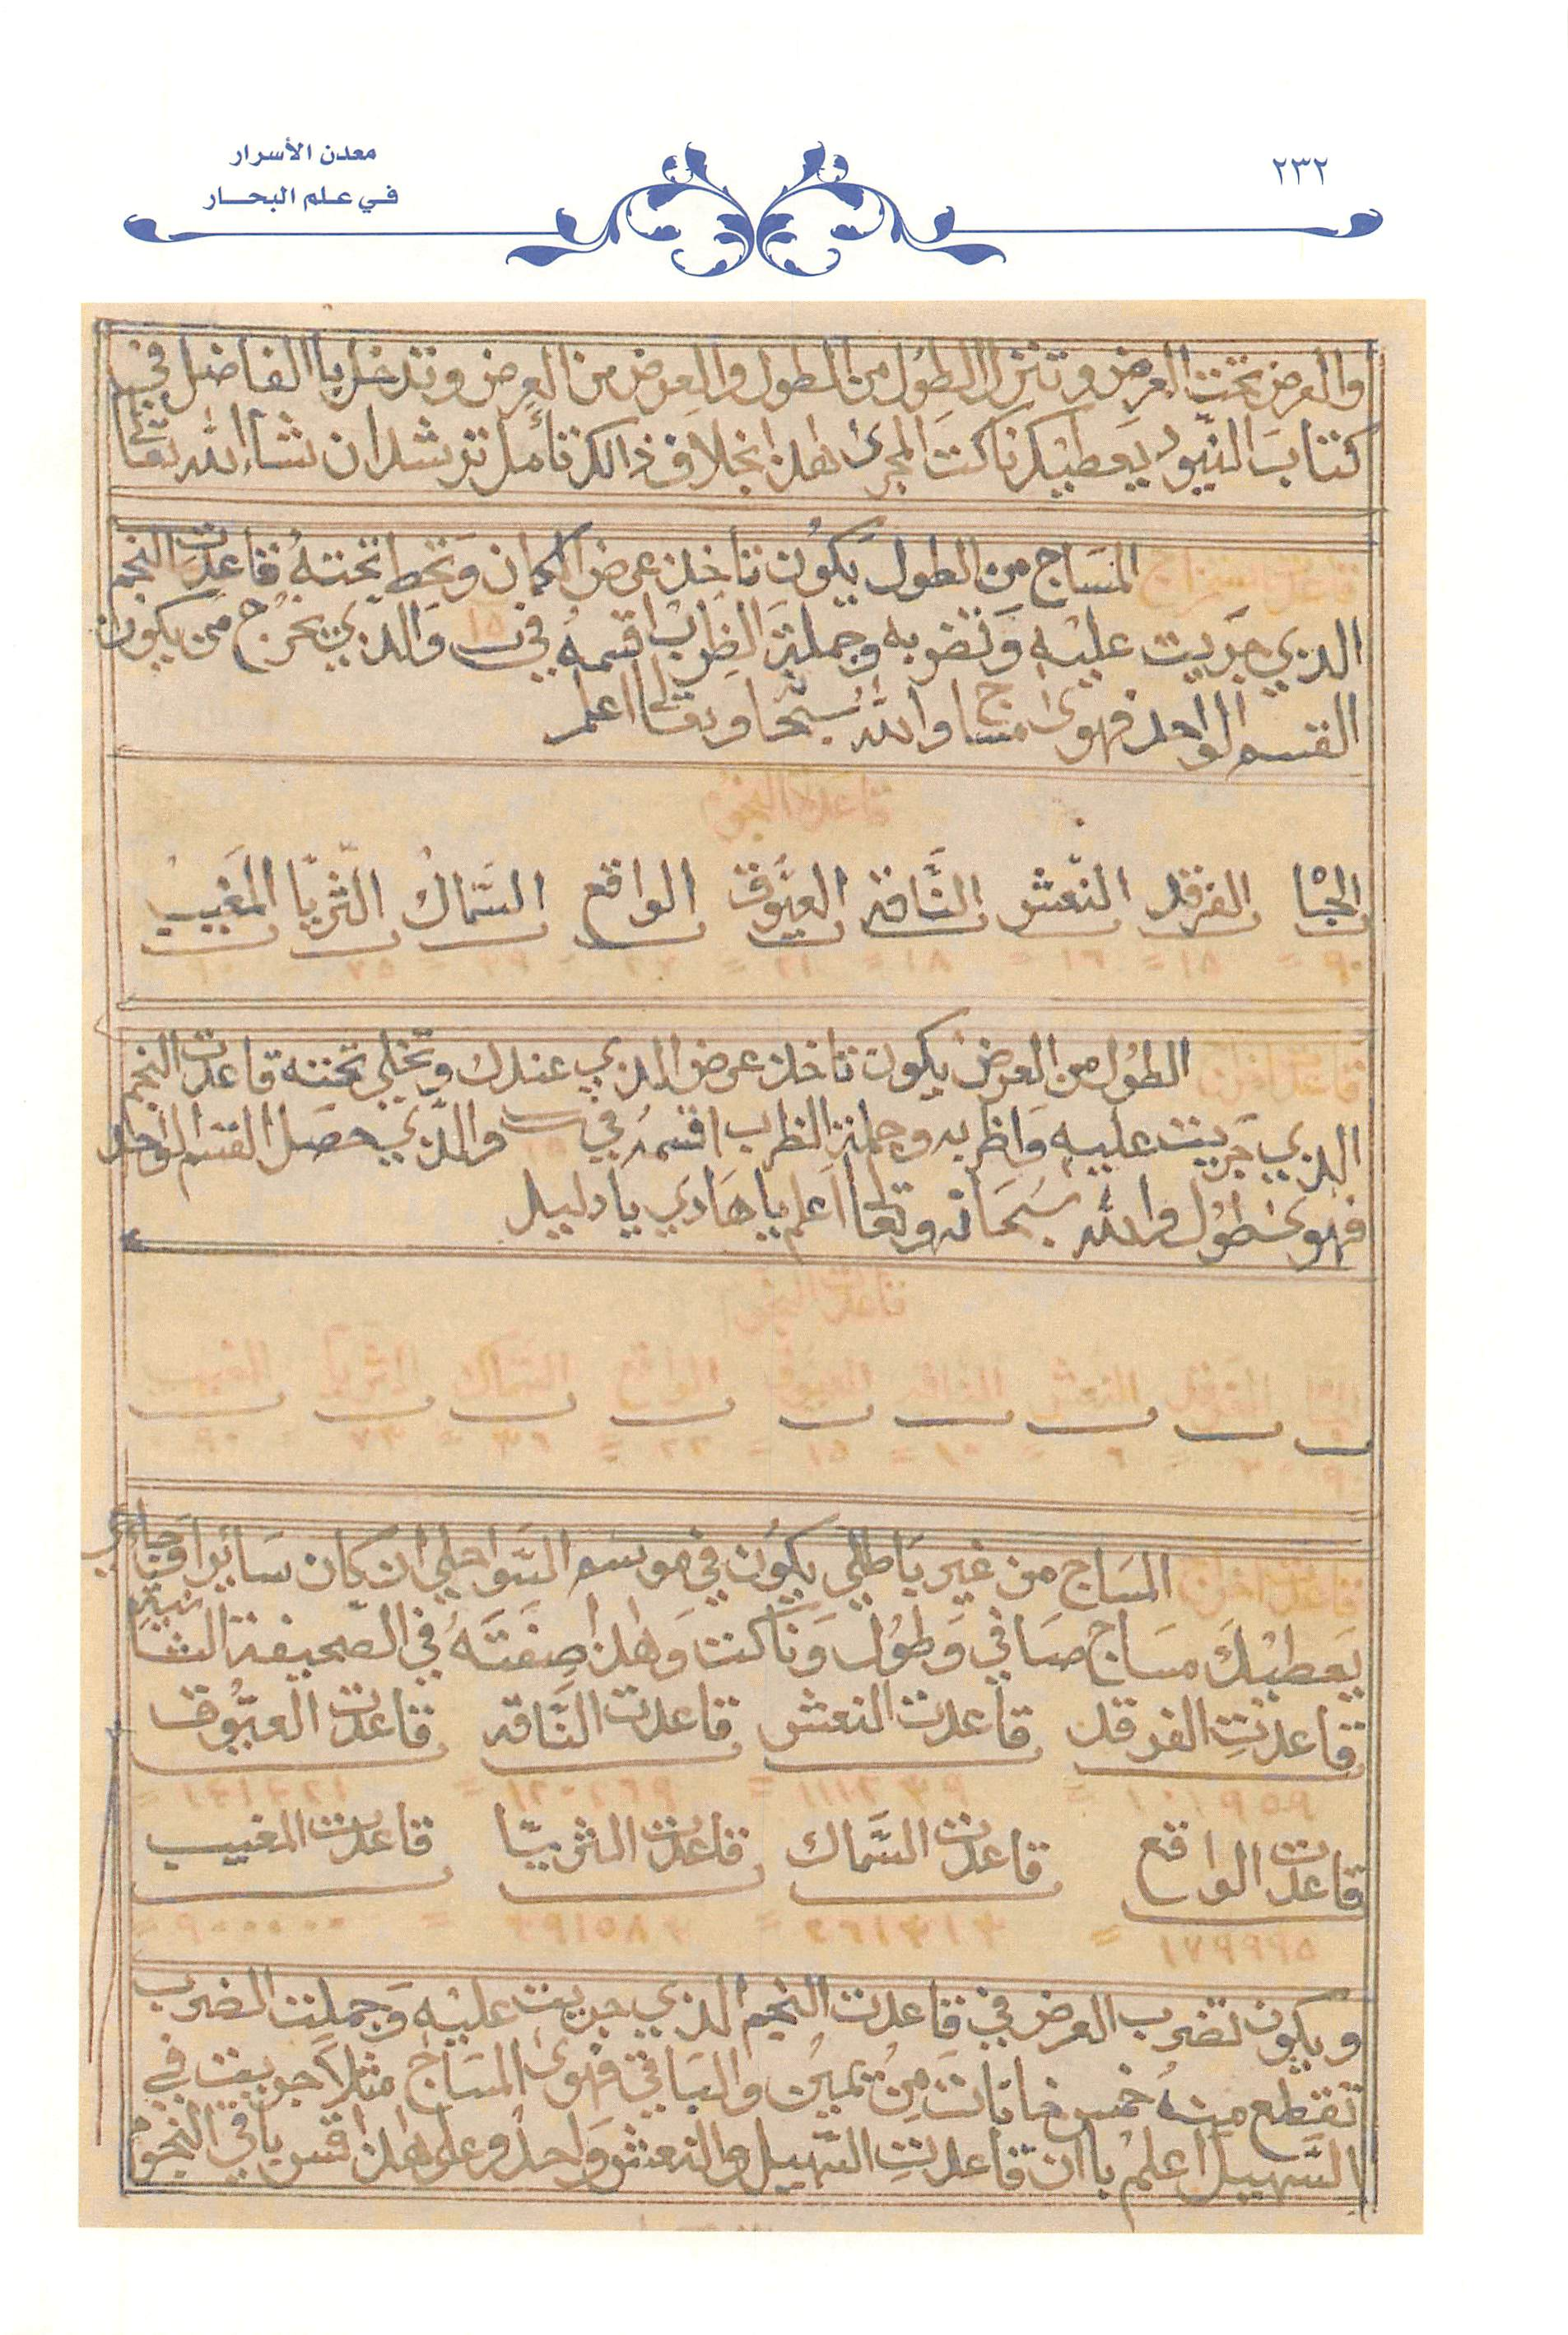 معدن الأسرار
في علم البحار
٢٣٢
والعرض تحت العرض وتنزل الطول من الطول والعرض من العرض وتدخل با الفاضل في
كتاب النيود يعطيك ناكت المجرى هذا بخلاف ذالك تأمل ترشد ان شاء الله تعالى
المساج من الطول يكون تاخذ عرض المكان وتحط تحته قاعدت النجم
الذي جريت عليه وتضربه وجملة الضرب اقسمه في والذي يخرج من يكون
القسم الواحد فهوى مساج والله سبحا وتعالى اعلم
قاعدة النجوم
الجاه الفرقد النعش النَّاقة العيّوق الواقع السماك الثريا المغيب
قاعدت اخرى الطول من العرض يكون تاخذ عرض الذي عندك وتخلي تحته قاعدت النجم
الذي جريت عليه واظربه وجملة الظرب اقسمه في والذي حصل القسم الواحد
فهوى طول والله سبحانه وتعالى اعلم يا هادي يا دليل
قاعدت النجوم
الجاه الفرقد النعش الناقه العيوق الواقع السماك الثريا المغيب
قاعدت اخرى المساج من غير باطلي يكون في موسم السواحلي ان كان سائرا وجاءي
يعطيك مساج صافي وطول وناكت وهذا صفته في الصحيفة الثانية
قاعدت الفرقد قاعدت النعش قاعدت النَّاقه قاعدت العيّوق
قاعدت الواقع قاعدت السَّماك قاعدت الثريّا قاعدت المغيب
ويكون تضرب العرض في قاعدت النجم الذي جريت عليه وجملت الضرب
تقطع منه خمس خانات من يمين والباقي فهوى المساج مثلاً جريت في
السَّهيل اعلم با ان قاعدت السّهيل والنعش واحد وعلى هذا قس باقي النجوم